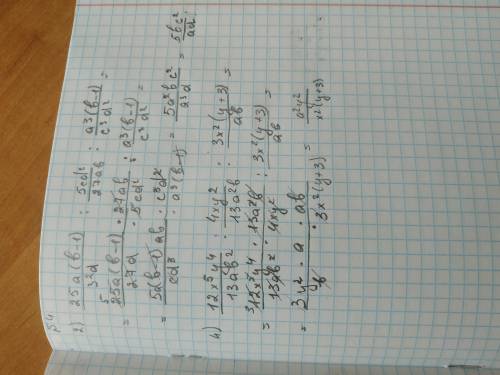 р54.
2) 25a(b-1)/3²d : 5cd²/27ab : a³(b-1)/c³d² =
= 25a(b-1) · 27ab/27d · 5cd² : a³(b-1)/c³d² =
= 5a(b-1) ab · c³d²/cd³ · a³(b-1) = 5a²bc²/a³d = 5bc²/ad
4) 12x⁵y⁴/13ab² · 4xy²/13a²b : 3x²(y+3)/ab =
= 12x⁵y⁴ · 13a²b/13ab² · 4xy² : 3x²(y+3)/ab =
= 3y² · a · ab/b · 3x²(y+3) = a²y²/x²(y+3)